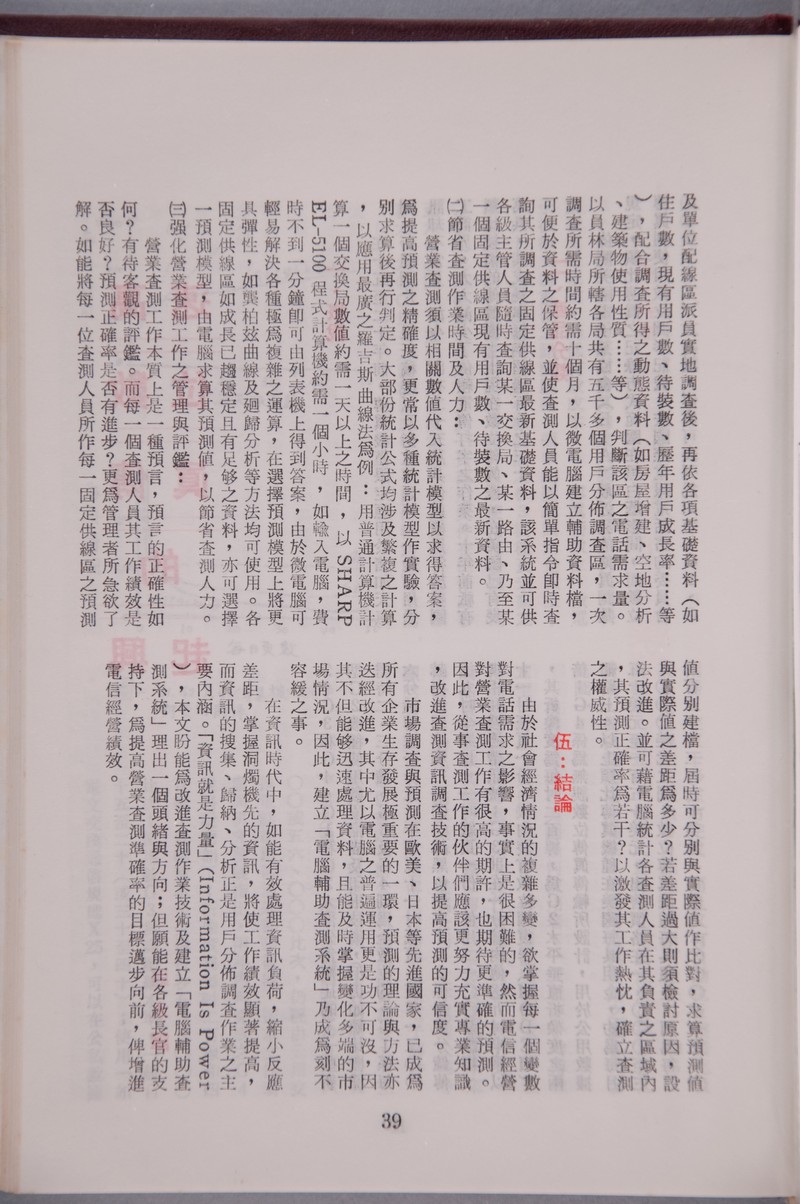 及單位配線區派員實地調查後，再依各項基礎資料（如
住戶數，現有用戶數、待裝數、歷年用戶成長率……等
），配合調查所得之動態資料（如房屋增建、空地分析
、建築物使用性質……等），判斷該區之電話需求量。
以員林局所轄各局共有五千多個用戶分佈調查區，一次
調查所需時間約需十個月，以微電腦建立輔助資料檔，
可便於資料之保管，並使查測人員能以簡單指令卽時查
詢其所調查之固定供線區最新基礎資料，該系統並可供
各級主管人員隨時查詢某一交換局、某一路由、乃至某
一個固定供線區現有用戶數、待裝數之最新資料。
㈡節省查測作業時間及人力：
營業查測須以相關數値代入統計模型以求得答案，
爲提高預測之精確度，更常以多種統計模型作實驗，分
別求算後再行判定。大部份統計公式均涉及繁複之計算
，以應用最廣之羅吉斯曲線法爲例：用普通計算機計
算一個交換局數値約需一天以上之時間，以 SHARP
EL-5100 程式計算機約需一個小時，如輸入電腦，費
時不到一分鐘卽可由列表機上得到答案，由於微電腦可
輕易解決各種極爲複雜之運算，在選擇預測模型上將更
具彈性，如龔柏玆曲線及廻歸分析等方法均可使用。各
固定供線區如成長已趨穩定且有足够之資料，亦可選擇
一預測模型，由電腦求算其預測値，以節省查測人力。
㈢强化營業查測工作之管理與評鑑：
營業查測工作本質上是一種預言，預言的正確性如
何？有待客觀的評鑑。而每一個查測人員其工作績效是
否良好？預測正確率是否有進步？更爲管理者所急欲了
解。如能將每一位查測人員所作每一固定供線區之預測
値分別建檔，屆時可分別與實際値作比對，求算預測値
與實際値之差距爲多少？若差距過大則須檢討原因，設
法改進。並可藉電腦統計各查測人員在其負責之區域內
，其預測正確率爲若干？以激發其工作熱忱，確立查測
之權威性。
伍：結論
由於社會經濟情況的複雜多變，欲掌握每一個變數
對電話需求之影響，事實上是很困難的，然而電信經營
對營業查測工作有很高的期許，也期待更準確的預測。
因此，從事查測工作的伙伴們應該更努力充實專業知識
，改進查測資訊調查技術，以提高預測的可信度。
市場調查與預測在歐美、日本等先進國家，已成爲
所有企業生存發展極重要的一環，預測的理論與方法亦
迭經改進，其中尤以電腦之普遍運用更是功不可沒，因
其不但能够迅速處理資料，且能及時掌握變化多端的市
場情況，因此，建立「電腦輔助查測系統」乃成爲刻不
容緩之事。
在資訊時代中，如能有效處理資訊負荷，縮小反應
差距，掌握洞燭機先的資訊，將使工作績效顯著提高，
而資訊的搜集、歸納、分析正是用戶分佈調查作業之主
要內涵。「資訊就是力量」（Information Is Power
），本文盼能爲改進查測作業技術及建立「電腦輔助查
測系統」理出一個頭緒與方向；但願能在各級長官的支
持下，爲提高營業查測準確率的目標邁步向前，俾增進
電信經營績效。
39